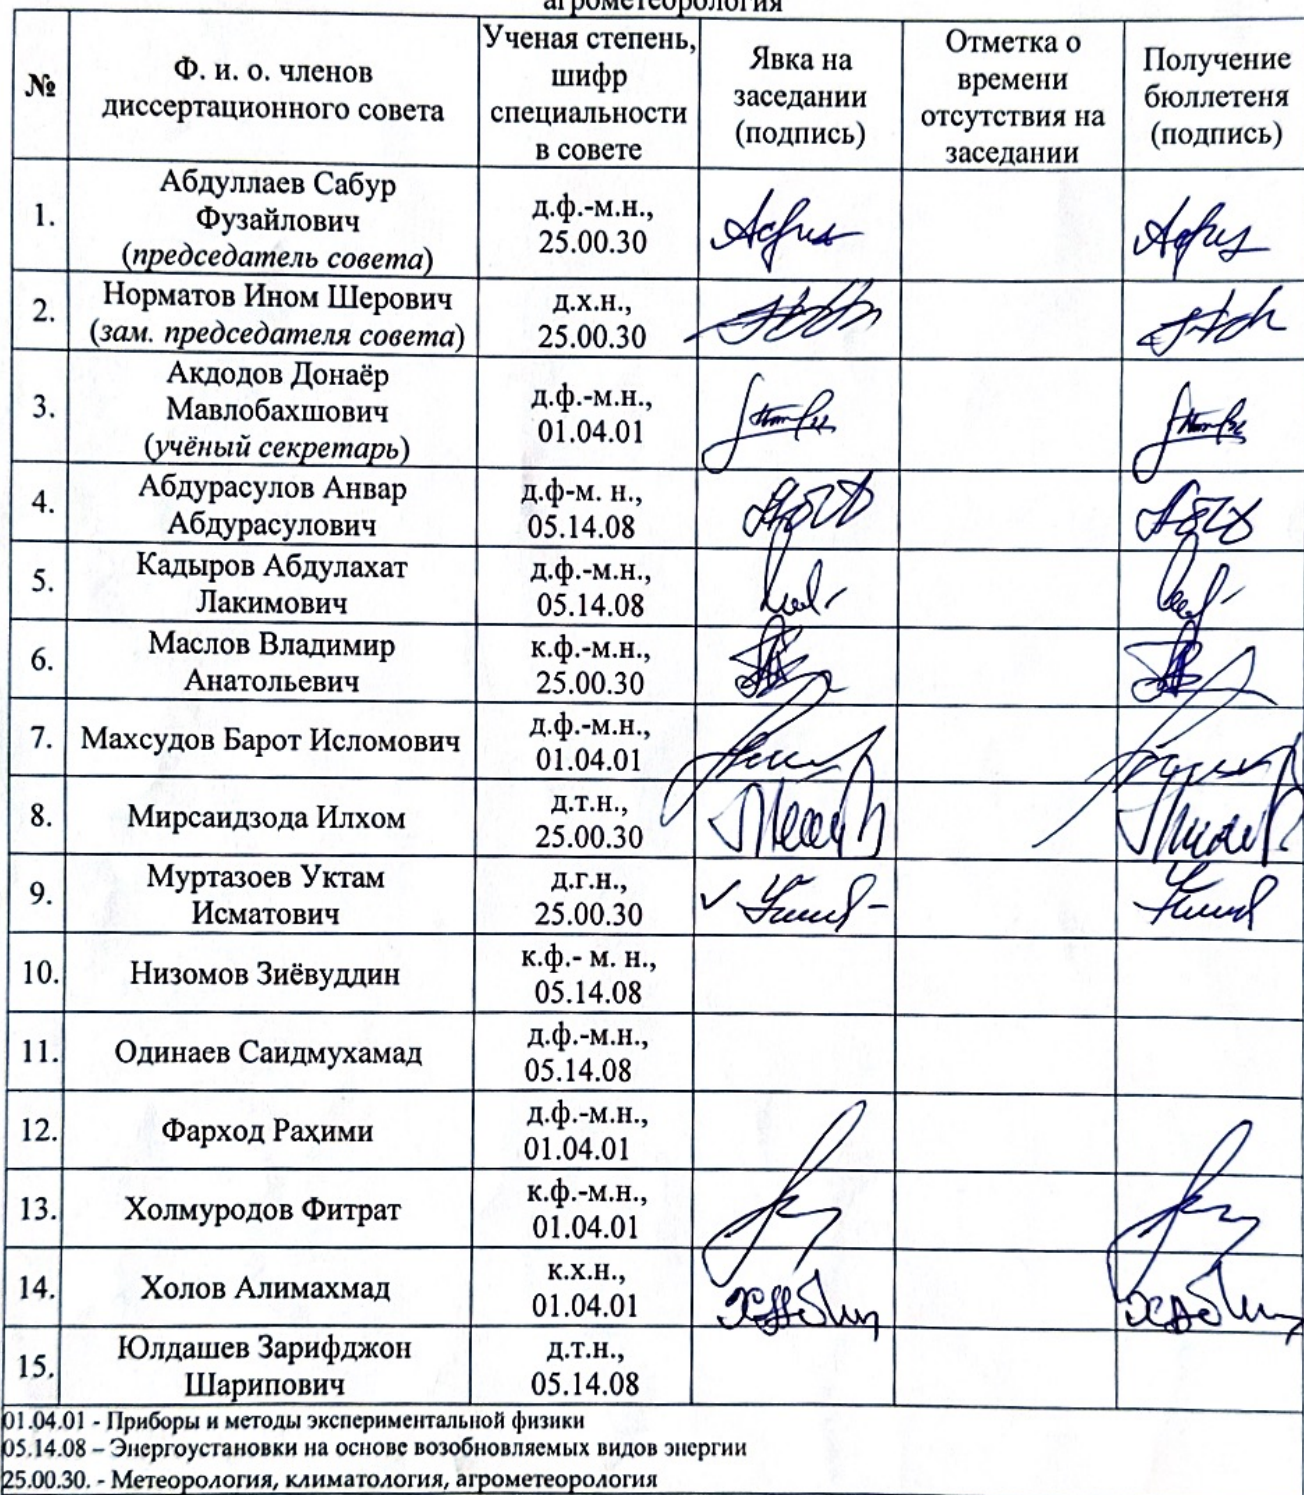 агрометеорология
№
Ф. и. о. членов
диссертационного совета
Ученая степень,
шифр
специальности
в совете
Явка на
заседании
(подпись)
Отметка о
времени
отсутствия на
заседании
Получение
бюллетеня
(подпись)
1.
Абдуллаев Сабур
Фузайлович
(председатель совета)
д.ф.-м.н.,
25.00.30
2.
Норматов Ином Шерович
(зам. председателя совета)
д.х.н.,
25.00.30
3.
Акдодов Донаёр
Мавлобахшович
(учёный секретарь)
д.ф.-м.н.,
01.04.01
4.
Абдурасулов Анвар
Абдурасулович
д.ф-м. н.,
05.14.08
5.
Кадыров Абдулахат
Лакимович
д.ф.-м.н.,
05.14.08
6.
Маслов Владимир
Анатольевич
к.ф.-м.н.,
25.00.30
7.
Махсудов Барот Исломович
д.ф.-м.н.,
01.04.01
8.
Мирсаидзода Илхом
д.т.н.,
25.00.30
9.
Муртазоев Уктам
Исматович
д.г.н.,
25.00.30
10.
Низомов Зиёвуддин
к.ф.- м. н.,
05.14.08
11.
Одинаев Саидмухамад
д.ф.-м.н.,
05.14.08
12.
Фарход Раҳими
д.ф.-м.н.,
01.04.01
13.
Холмуродов Фитрат
к.ф.-м.н.,
01.04.01
14.
Холов Алимахмад
к.х.н.,
01.04.01
15.
Юлдашев Зарифджон
Шарипович
д.т.н.,
05.14.08
01.04.01 - Приборы и методы экспериментальной физики
05.14.08 – Энергоустановки на основе возобновляемых видов энергии
25.00.30. - Метеорология, климатология, агрометеорология